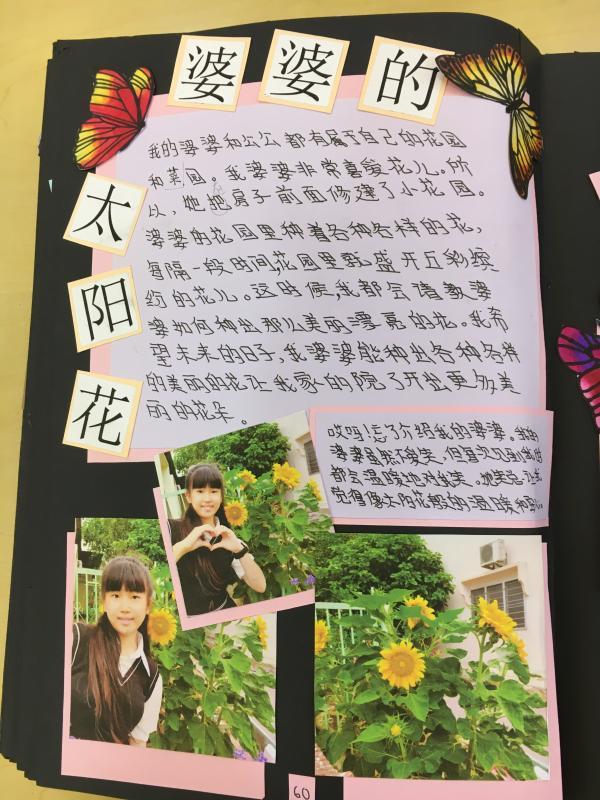 婆婆的
太阳花
我的婆婆和公公都有属于自己的花园
和菜园。我婆婆非常喜爱花儿。所
以，她把房子前面修建了小花园。
婆婆的花园里种着各种各样的花，
每隔一段时间，花园里就盛开五彩缤
纷的花儿。这时候，我都会请教婆
婆如何种出那么美丽漂亮的花。我希
望未来的日子，我婆婆能种出各种各样
的美丽的花让我家的院子开出更多美
丽的花朵。
哎呦！忘了介绍我的婆婆。我的
婆婆虽然不爱笑，但每次见到我时
都会温暖地对我笑。她笑起让我
觉得像太阳花般的温暖和
60